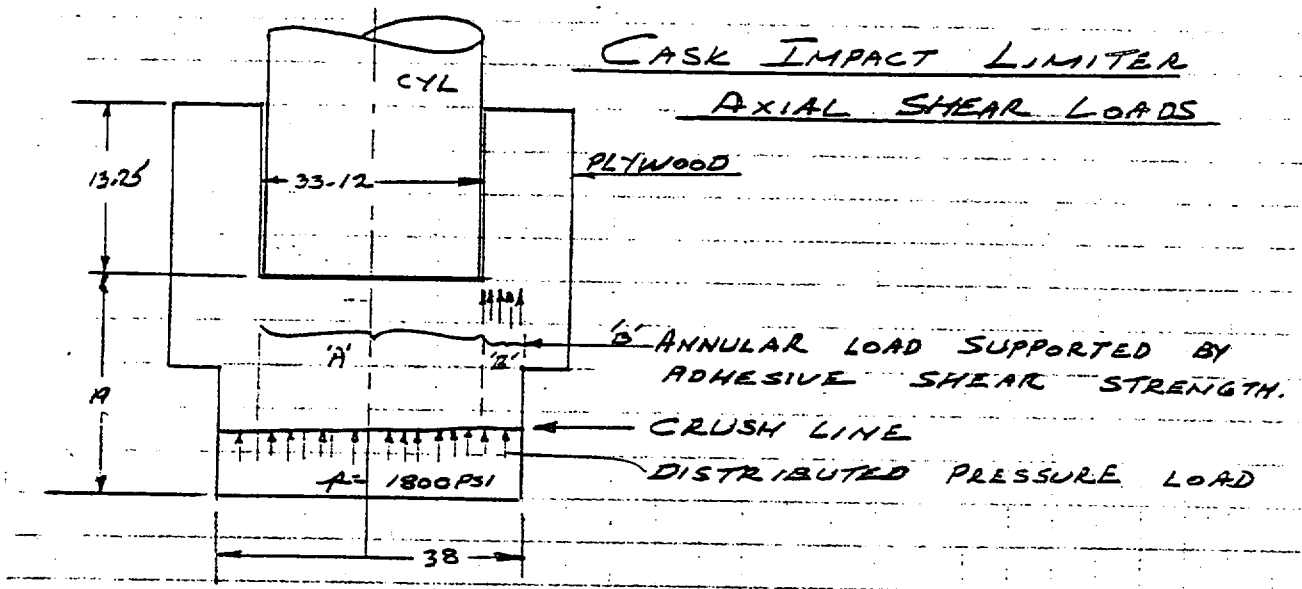 CASK IMPACT LIMITER
AXIAL SHEAR LOADS
CYL
PLYWOOD
13.25
33.12
'A'
'B'
'B' ANNULAR LOAD SUPPORTED BY
ADHESIVE SHEAR STRENGTH.
19
CRUSH LINE
p= 1800 PSI
DISTRIBUTED PRESSURE LOAD
38